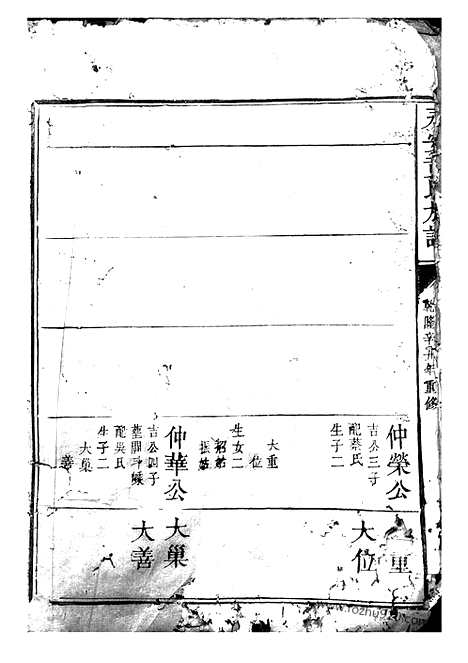 族譜
乾隆辛丑年重修
仲榮公
吉公三子
配蔡氏
生子二
大重
位
生女二
招姑
振姑
仲華公
吉公四子
配吳氏
生子二
大巢
善
重
大位
大巢
大善